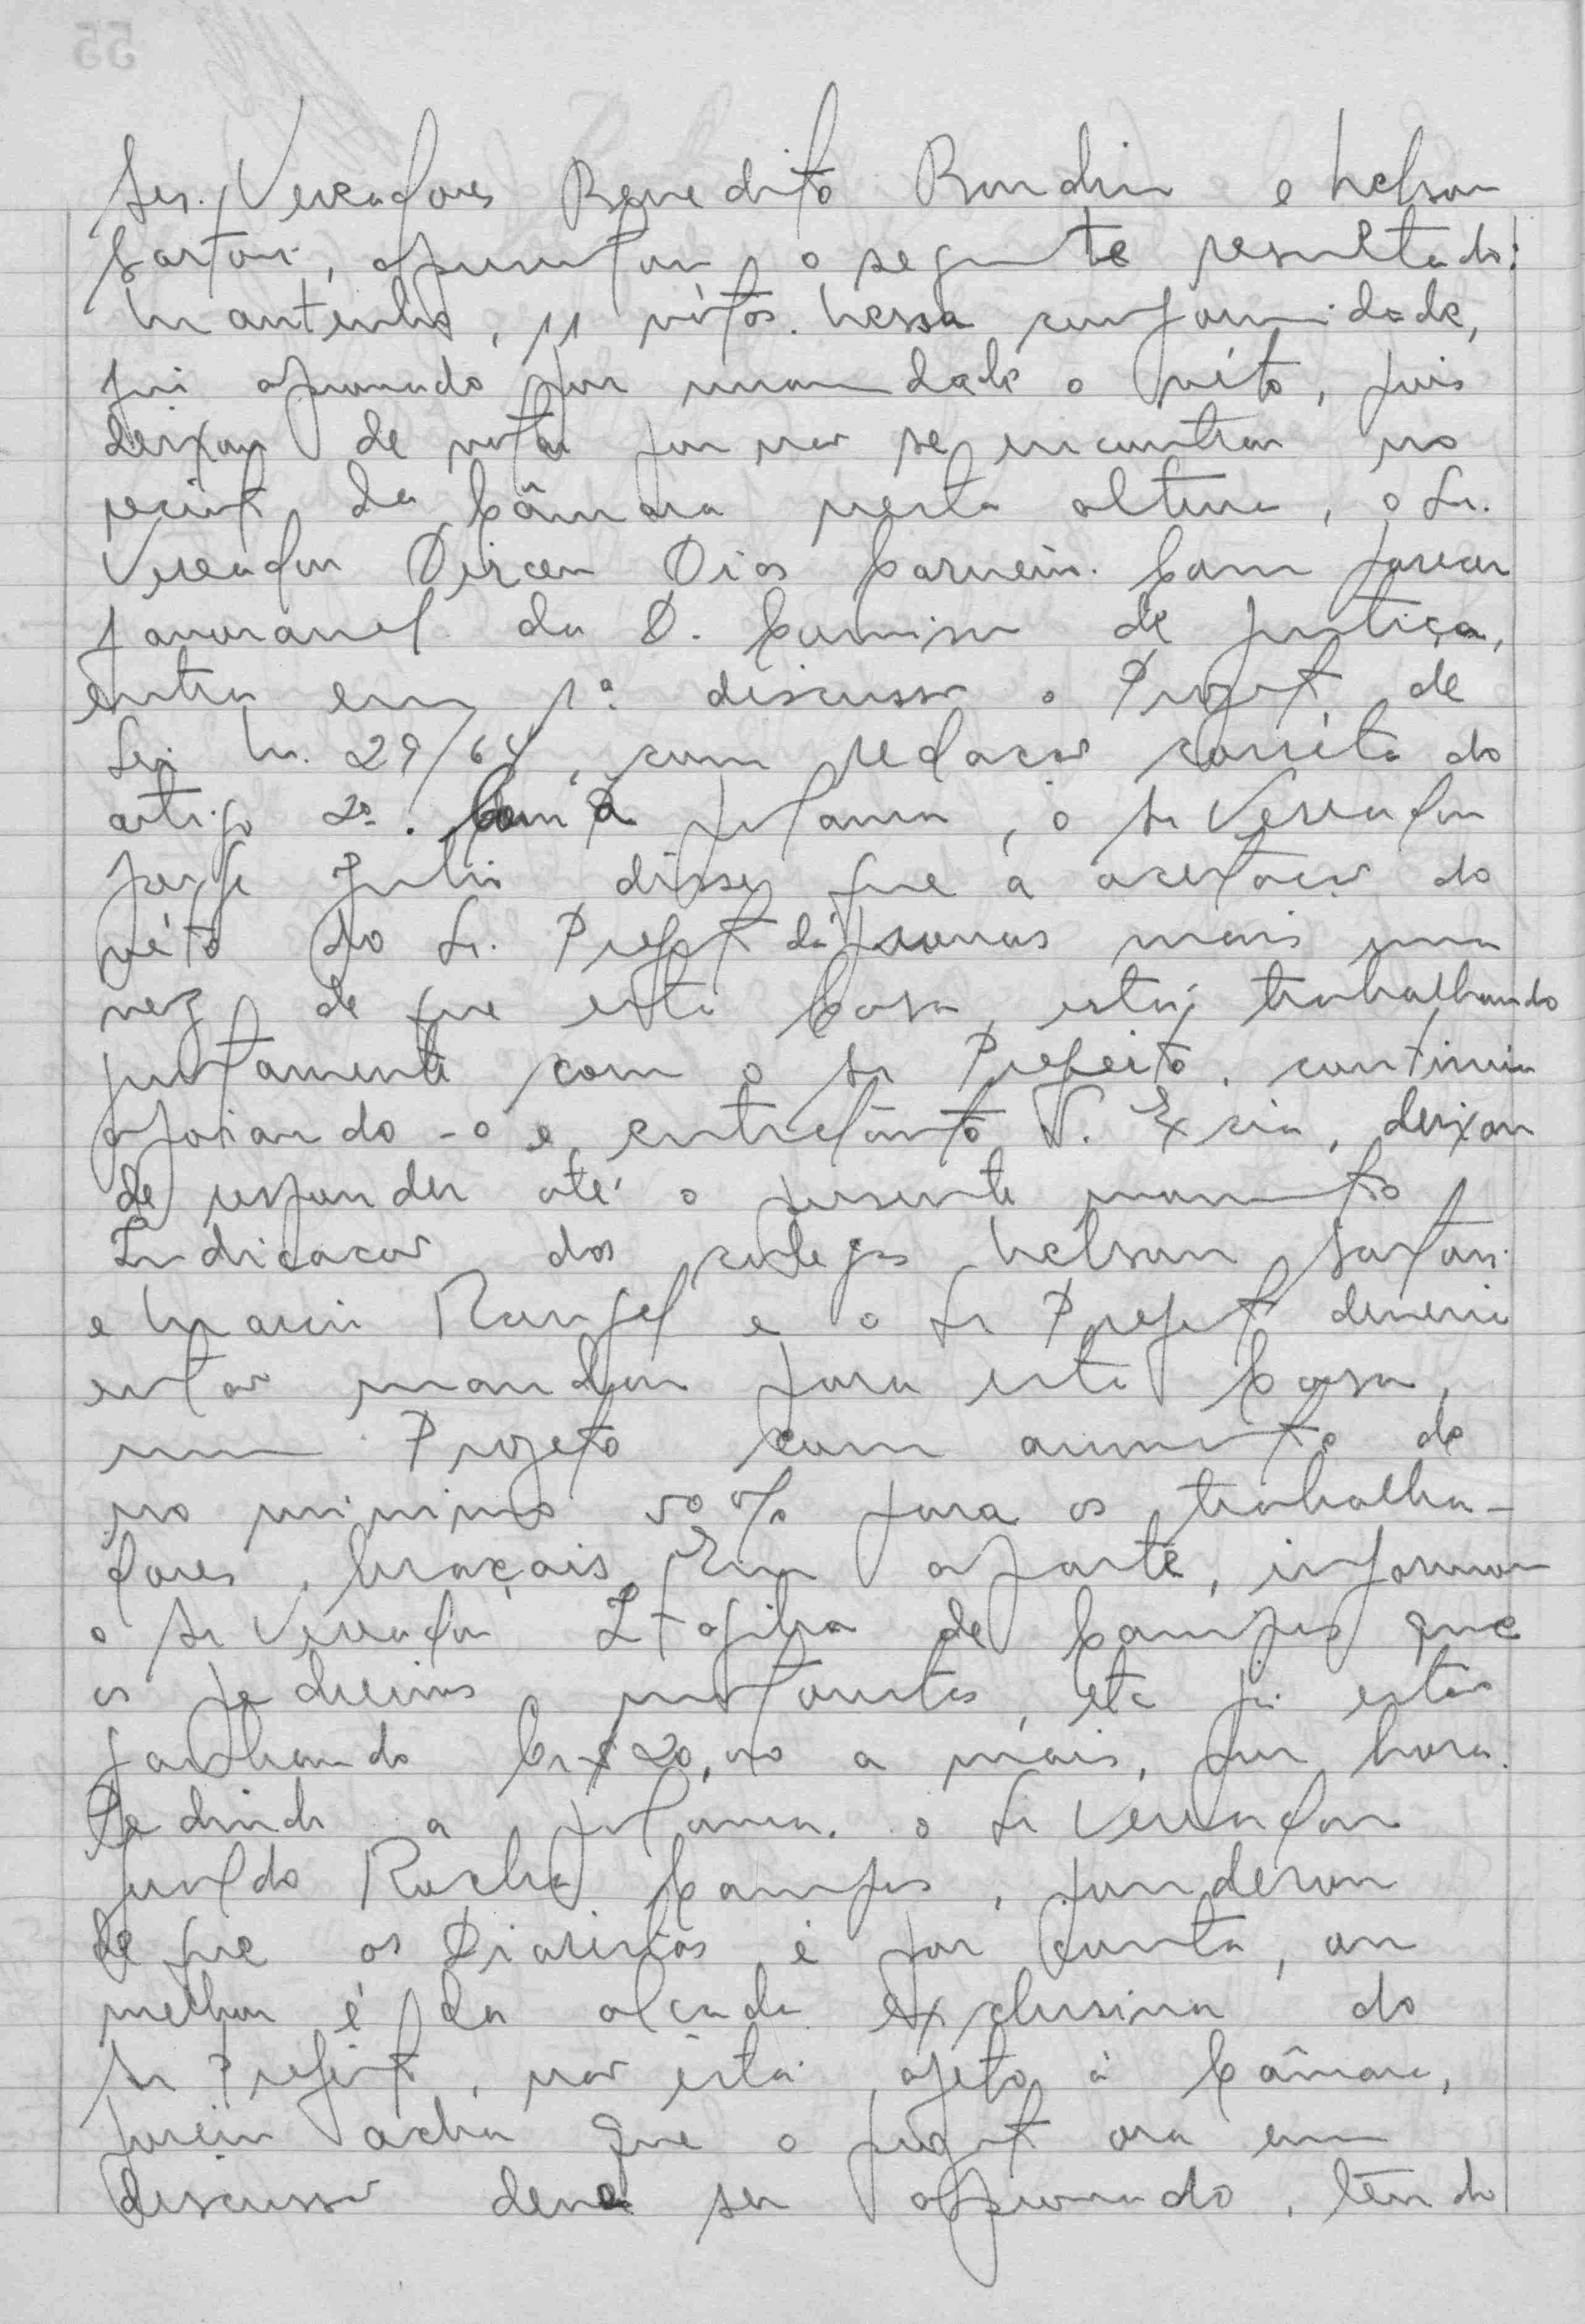 Srs. Vereadores Benedito Rondin e Nelson
Sartori, apuraram o seguinte resultado:
Mantenho, 11 vótos. Nessa conformidade,
foi aprovado por unanimidade o véto, pois
deixou de votar por não se encontrar no
recinto da Câmara nesta altura, o Sr.
Vereador Dirceu Dias Carneiro. Com parecer
favoravel da D. Comissão de Justiça,
entra em 1ª discussão o Projeto de
Lei Nº 29/64, com redação corréta do
artigo 2º. Com a palavra, o Sr Vereador
Jorge Julio disse que a aceitação do
véto do Sr. Prefeito dá provas mais uma
vez de que esta Casa está trabalhando
juntamente com o Sr Prefeito, continúa
apoiando-o e entretanto S. Excia, deixou
de responder até o presente momento
Indicação dos colegas Nelson Sartori
e Mario Rangel e o Sr Prefeito deveria
estar mandan para esta Casa,
um Projeto com aumento de
no minimo 50% para os trabalha-
dores braçais. Em aparte, informou
o Sr Vereador Itagiba de Campos que
os pedreiros, ajudantes, etc já estão
ganhando Cr$20,00 a mais, por hora.
Pedindo a palavra, o Sr Vereador
Geraldo Rocha Campos, ponderou
de que os Diaristas é por conta, ou
melhor é da alçada exclusiva do
Sr Prefeito, não está afeto à Câmara,
porém acha que o projeto ora em
discussão deve ser aprovado, tendo